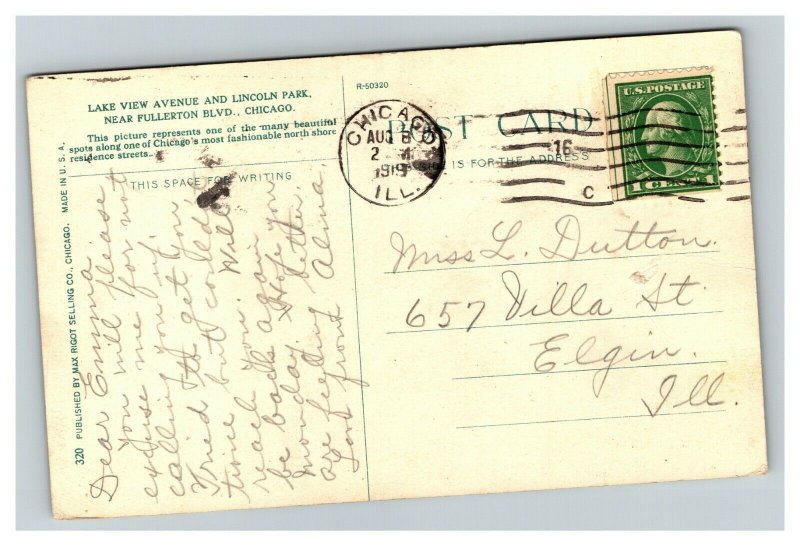 LAKE VIEW AVENUE AND LINCOLN PARK,
NEAR FULLERTON BLVD., CHICAGO.
This picture represents one of the many beautiful
spots along one of Chicago's most fashionable north shore
residence streets.
THIS SPACE FOR WRITING
320 PUBLISHED BY MAX RIGOT SELLING CO., CHICAGO. MADE IN U.S.A.
Dear Emma.
You will please
excuse me for not
calling you up.
Tried to get you
twice but could
reach you. Will
be back again
monday. Hope you
are feeling better.
front Alma
R-50320
POST CARD
IS FOR THE ADDRESS
CHICAGO
AUG 8
2
1919
ILL.
16
C
U.S. POSTAGE
1 CENT 1
Miss L. Dutton.
657 Villa St.
Elgin.
Ill.